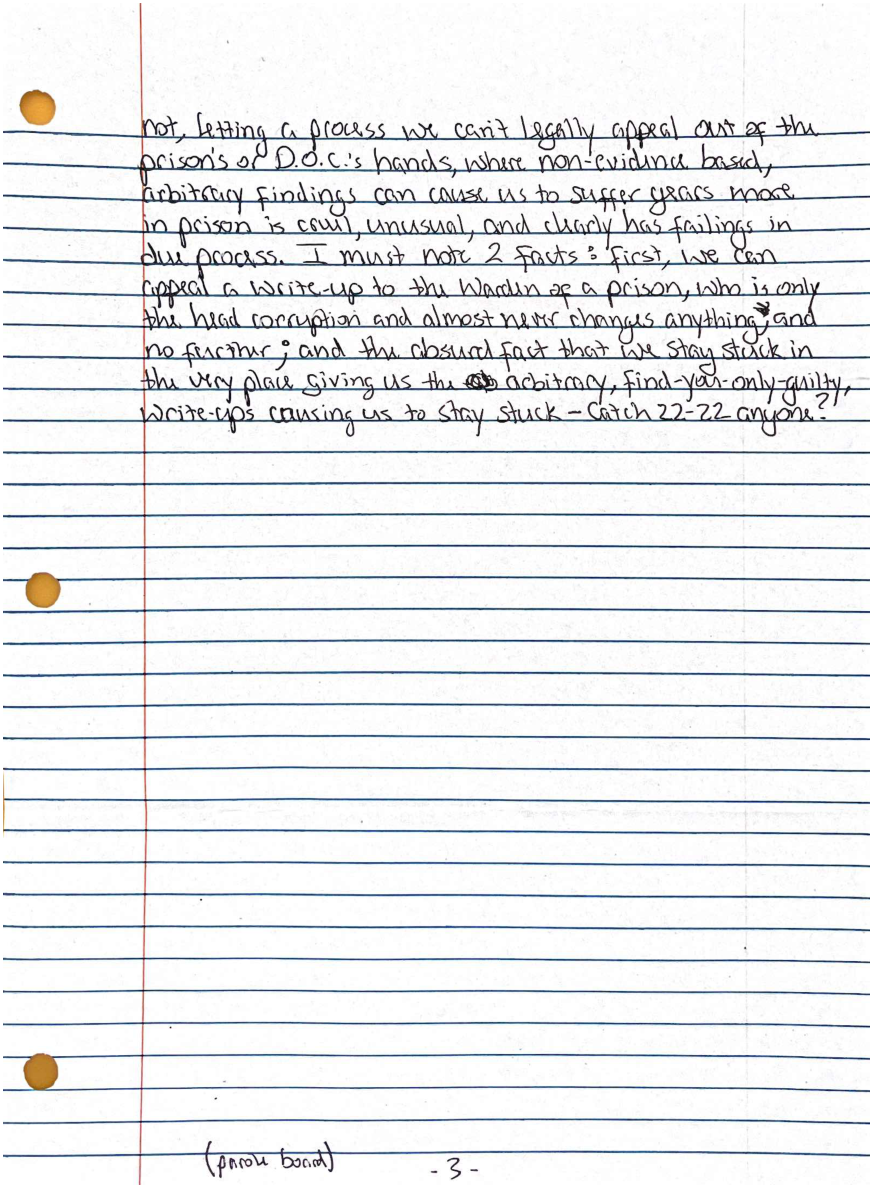 not, letting a process we can't legally appeal out of the
prison's or D.O.C.'s hands, where non-evidence based,
arbitrary findings can cause us to suffer years more
in prison is cruil, unusual, and clearly has failings in
due process. I must note 2 facts: first, we can
appeal a write-up to the Warden of a prison, who is only
the head corruption and almost never changes anything, and
no further; and the absurd fact that we stay stuck in
the very place giving us the arbitrary, find-you-only-guilty,
write-ups causing us to stay stuck – Catch 22-22 anyone?
(parole board)
-3-